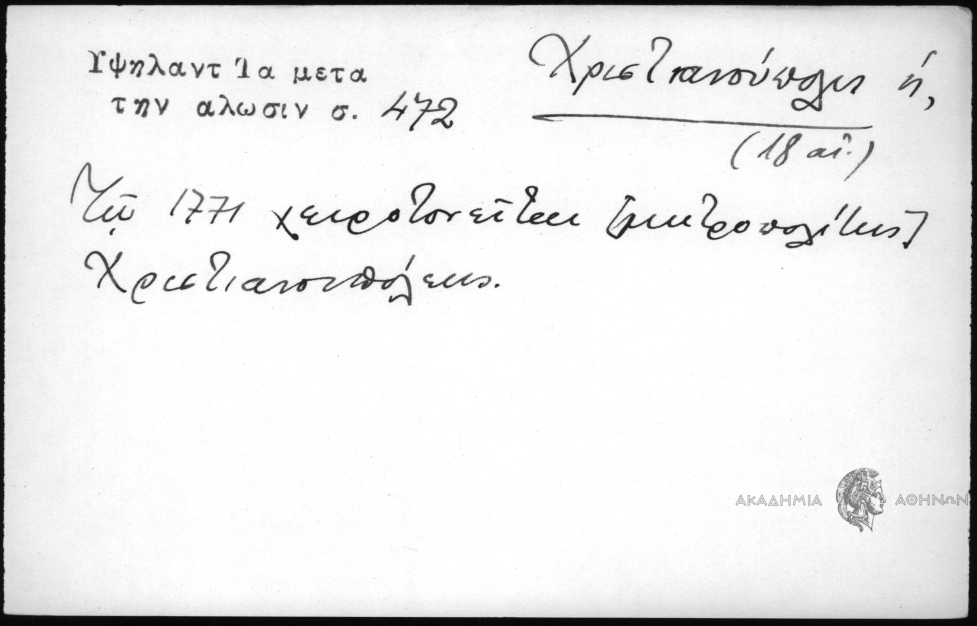 Υψηλαντ Τα μετα
την αλωσιν σ. 472
Χριστιανούπολις ἡ,
(18 αἰ.)
Τῷ 1771 χειροτονεῖται [μητροπολίτης]
Χριστιανουπόλεως.
ΑΚΑΔΗΜΙΑ ΑΘΗΝΩΝ